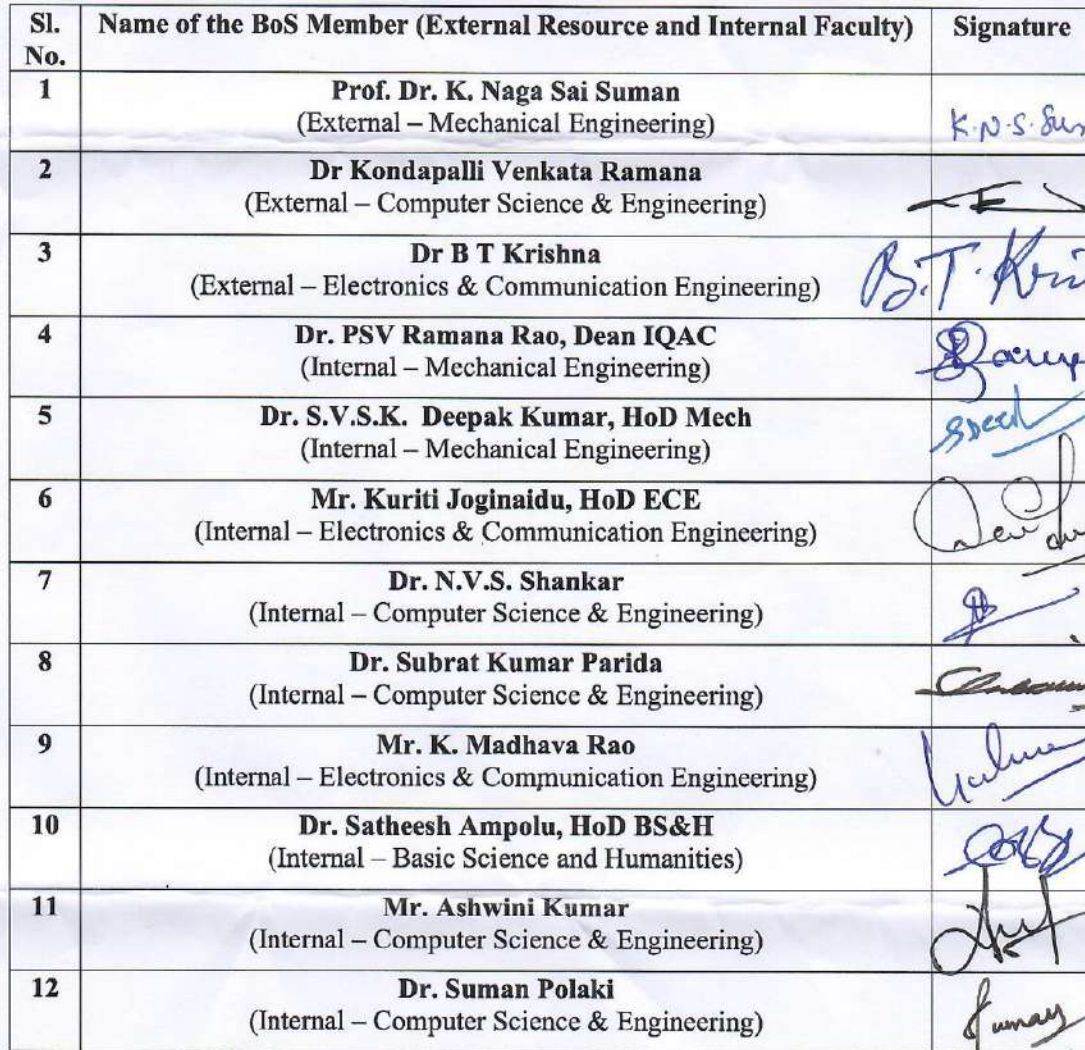 Sl. Name of the BoS Member (External Resource and Internal Faculty) Signature
No.
1 Prof. Dr. K. Naga Sai Suman
(External – Mechanical Engineering) K.N.S.
2 Dr Kondapalli Venkata Ramana
(External – Computer Science & Engineering)
3 Dr B T Krishna
(External – Electronics & Communication Engineering) B.T.
4 Dr. PSV Ramana Rao, Dean IQAC
(Internal – Mechanical Engineering)
5 Dr. S.V.S.K. Deepak Kumar, HoD Mech
(Internal – Mechanical Engineering)
6 Mr. Kuriti Joginaidu, HoD ECE
(Internal – Electronics & Communication Engineering)
7 Dr. N.V.S. Shankar
(Internal – Computer Science & Engineering)
8 Dr. Subrat Kumar Parida
(Internal – Computer Science & Engineering)
9 Mr. K. Madhava Rao
(Internal – Electronics & Communication Engineering)
10 Dr. Satheesh Ampolu, HoD BS&H
(Internal – Basic Science and Humanities)
11 Mr. Ashwini Kumar
(Internal – Computer Science & Engineering)
12 Dr. Suman Polaki
(Internal – Computer Science & Engineering)